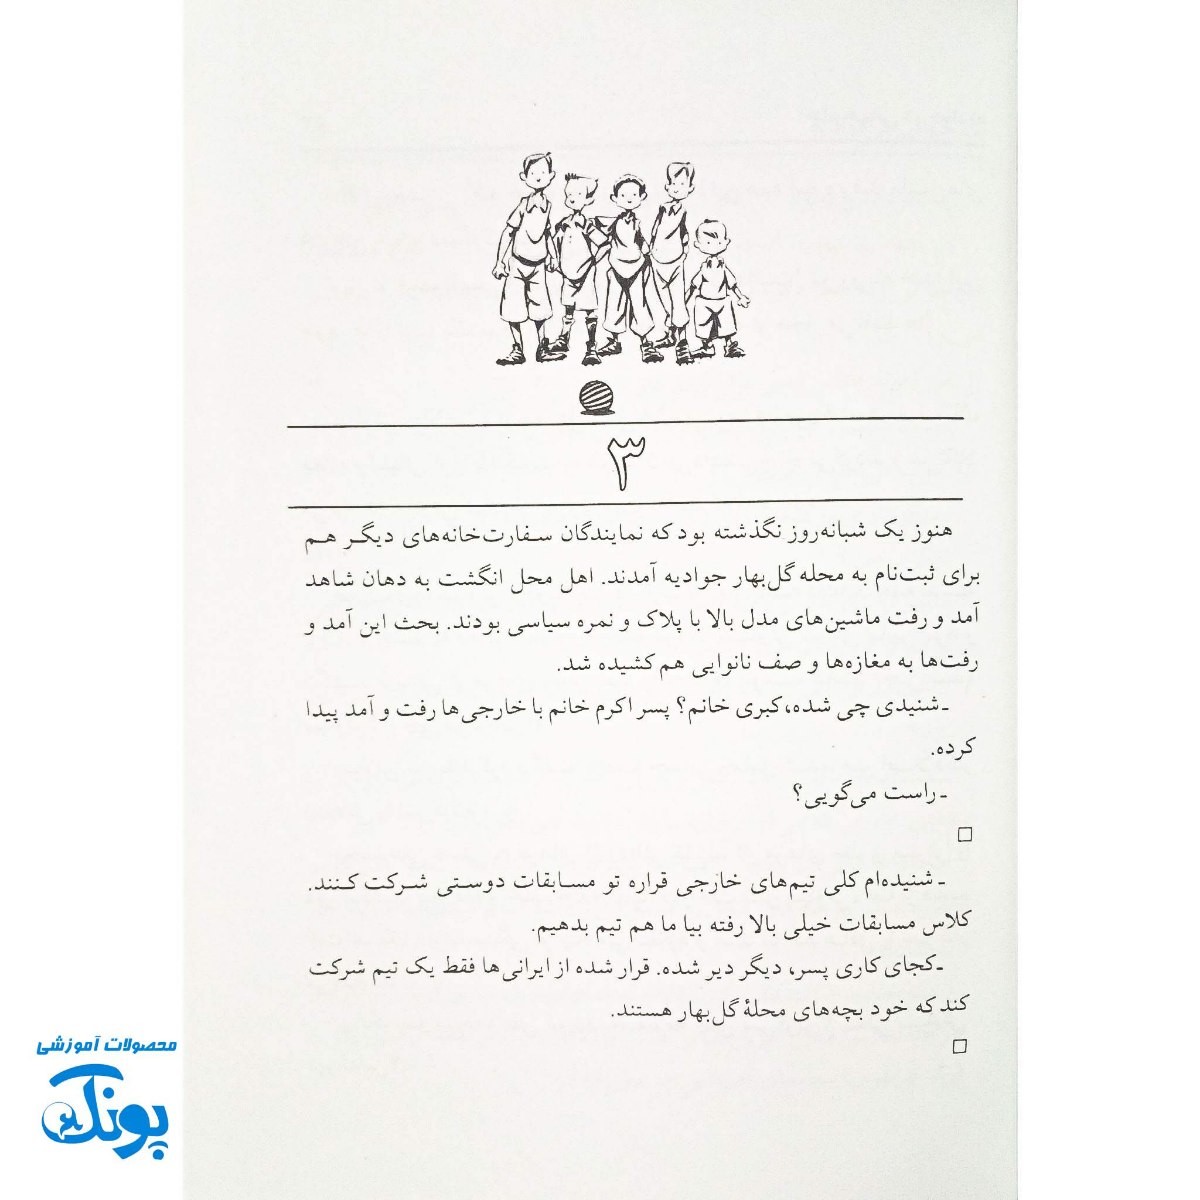 ۳
هنوز یک شبانه‌روز نگذشته بود که نمایندگان سفارت‌خانه‌های دیگر هم
برای ثبت‌نام به محله گل‌بهار جوادیه آمدند. اهل محل انگشت به دهان شاهد
آمد و رفت ماشین‌های مدل بالا با پلاک و نمره سیاسی بودند. بحث این آمد و
رفت‌ها به مغازه‌ها و صف نانوایی هم کشیده شد.
ـ شنیدی چی شده، کبری خانم؟ پسر اکرم خانم با خارجی‌ها رفت و آمد پیدا
کرده.
ـ راست می‌گویی؟
□
ـ شنیده‌ام کلی تیم‌های خارجی قراره تو مسابقات دوستی شرکت کنند.
کلاس مسابقات خیلی بالا رفته بیا ما هم تیم بدهیم.
ـ کجای کاری پسر، دیگر دیر شده. قرار شده از ایرانی‌ها فقط یک تیم شرکت
کند که خود بچه‌های محلهٔ گل‌بهار هستند.
□
محصولات آموزشی
پونک